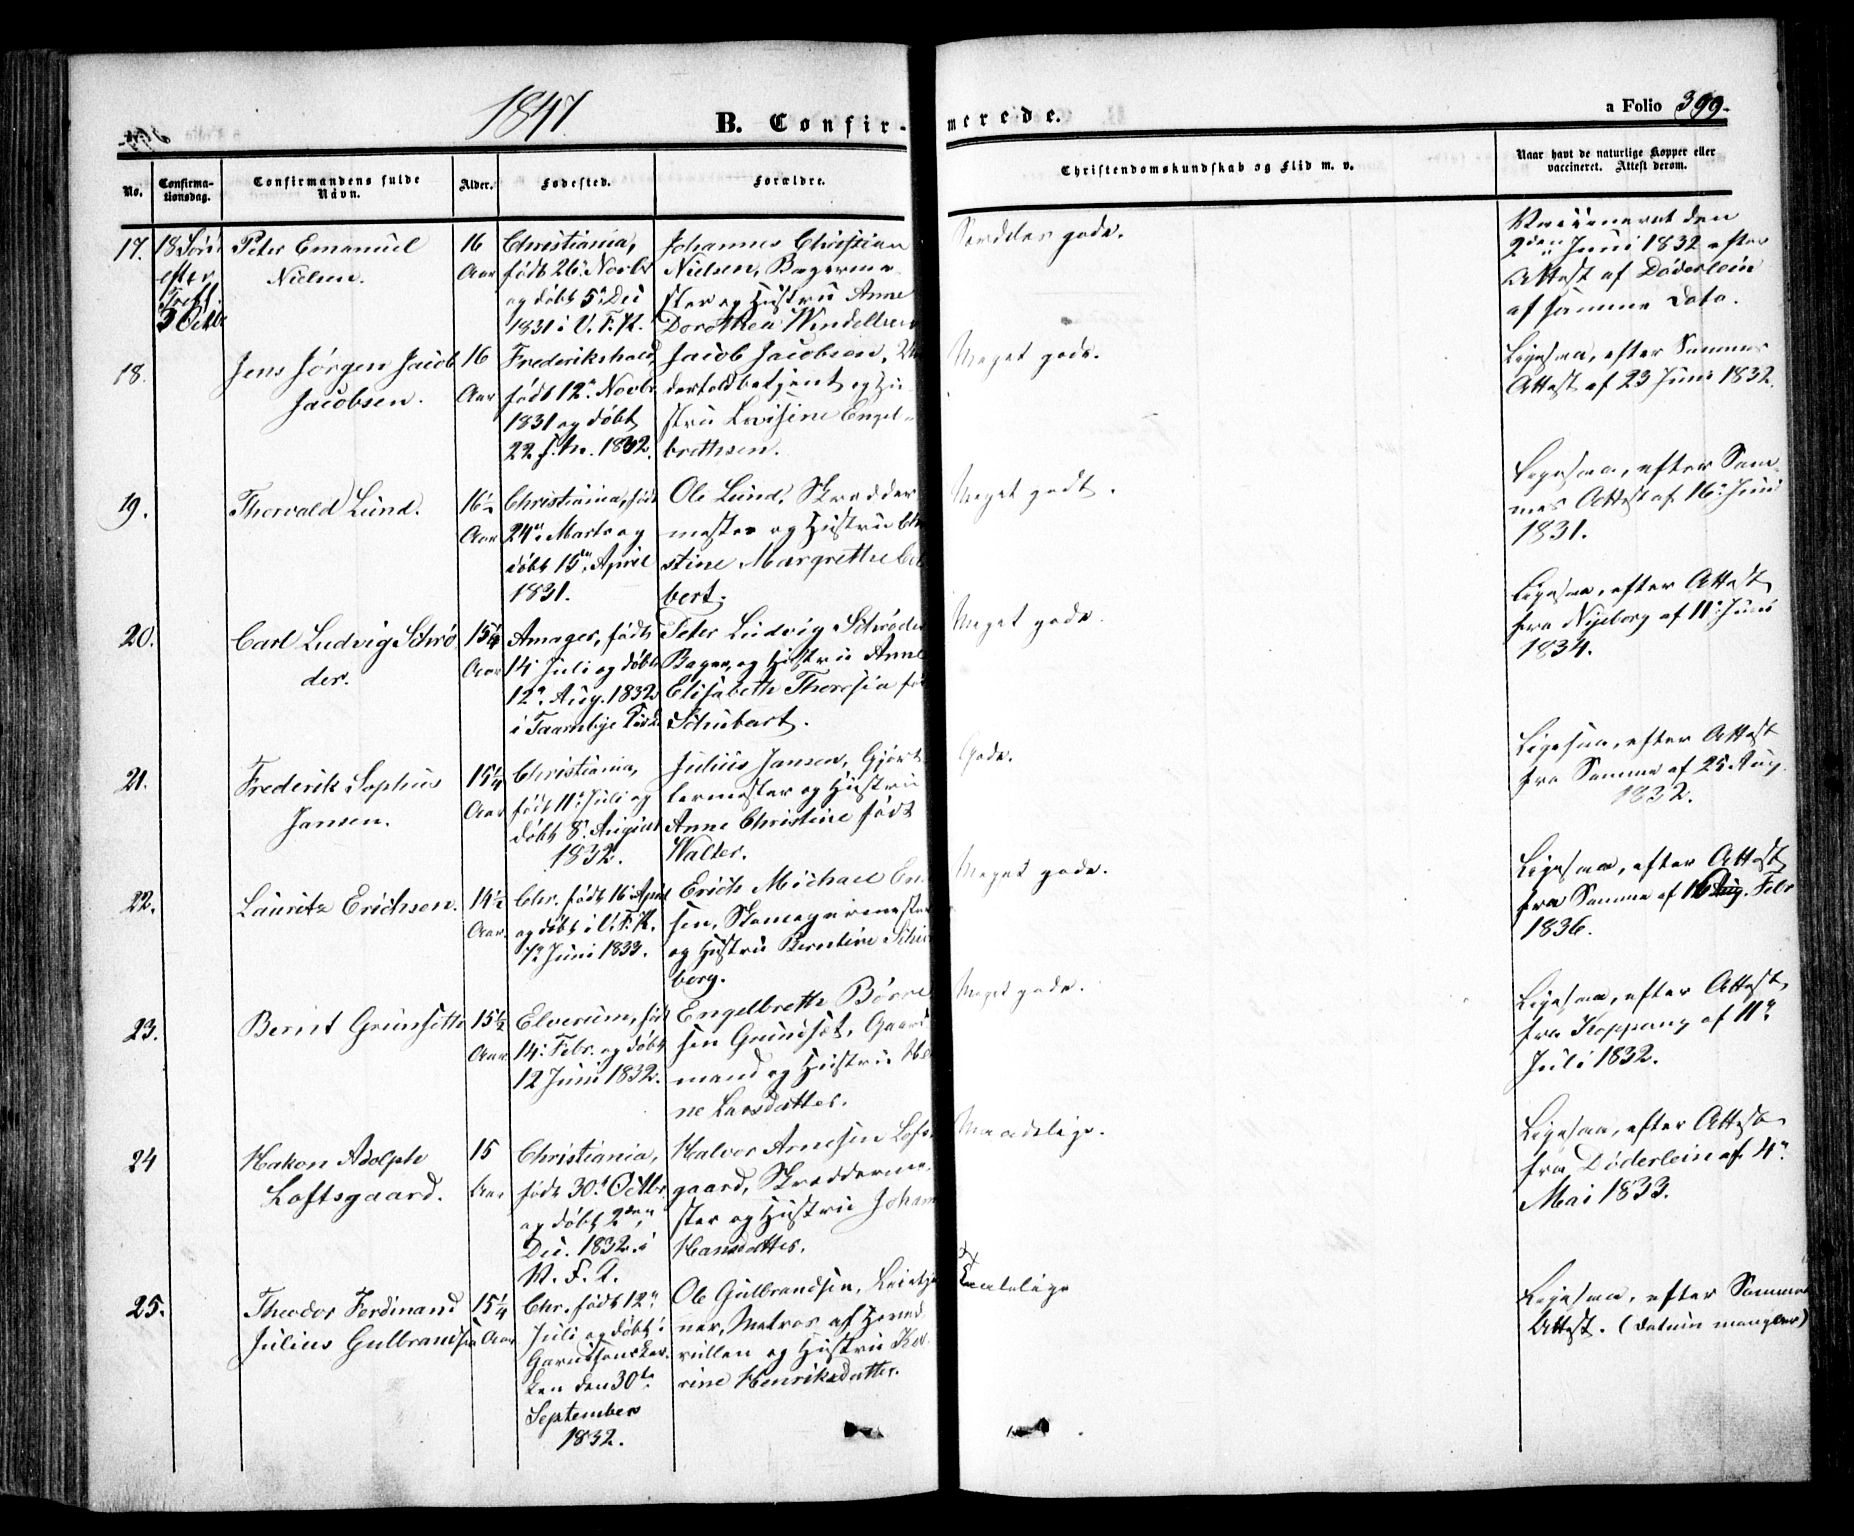 1847.
B. Confir-
merede.
a Folio 399.
No.
Confirma-
tionsdag.
Confirmandens fulde
Navn.
Alder.
Fødested.
Forældre.
Christendomskundskab og Flid m. v.
Naar havt de naturlige Kopper eller
vaccineret. Attest derom.
17.
18 Sønd
efter
Tref.
3 Octbr
Peter Emanuel
Nielsen.
16
Aar
Christiania,
født 26. Novbr
og døbt 5. Dec
1831 i V. F. K.
Johannes Christian
Nielsen, Bagerme-
ster og Hustru Anne
Dorothea
Særdeles godt.
Vaccineret den
2den Juni 1832 efter
Attest af Døderlein
af samme Dato.
18.
Jens Jørgen Jacob
Jacobsen.
16
Aar
Frederikshald,
født 12. Novbr
1831 og døbt
22 1832.
Jacob Jacobsen,
dertoldbetjent og Hu-
stru Lovisine Engel-
brethsen.
Meget godt.
Ligesaa, efter Sammes
Attest af 23 Juni 1832.
19.
Thorvald Lund.
16½
Aar
Christiania, født
24. Marts og
døbt 15de April
1831.
Ole Lund, Skrædder
mester og Hustru
stine Margrethe
bert.
Meget godt.
Ligesaa, efter Sam-
mes Attest af 16. Juni
1831.
20.
Carl Ludvig Schrø
der.
15¼
Aar
Amager, født
14 Juli og døbt
12. Aug. 1832
i Taarnbye Kirke
Peter Ludvig Schrøder
Bager, og Hustru Anne
Elisabeth Theresia
Schubart.
Meget godt.
Ligesaa, efter Attest
fra Nyeborg af 11. Juni
1834.
21.
Frederik Sophus
Jansen.
15¼
Aar
Christiania,
født 11. Juli og
døbt 8. August
1832.
Julius Jansen, Gjørt
lermester og Hustru
Anne Christine født
Walter.
Godt.
Ligesaa, efter Attest
fra Samme af 25 Aug.
1832.
22.
Lauritz Erichsen.
14½
Aar.
Chr. født 16 April
og døbt i V. F. K.
7. Juni 1833.
Erich Michael
sen, Skomagermester
og Hustru Berntine
berg.
Meget godt.
Ligesaa, efter Attest
fra Samme af 16 Febr
1836.
23.
Bernt Grunsetth
15½
Aar
Elverum, født
14. Febr. og døbt
12 Juni 1832.
Engelbreth Børre
sen Grundset, Gaard
mand og Hustru
ne Larsdatter.
Meget godt.
Ligesaa, efter Attest
fra Koppang af 11.
Juli 1832.
24
Hakon Adolph
Loftsgaard.
15
Aar
Christiania,
født 30. Octbr
og døbt 2den
Dec. 1832. i
V. F. K.
Halvor Arnesen Lofts
gaard, Skrædderme-
ster og Hustru Johan
Hansdatter.
Maadelige.
Ligesaa, efter Attest
fra Døderlein af 4.
Mai 1833.
25.
Theodor Ferdinand
Julius Gulbrandsen
15¼
Aar
Chr. født 12.
Juli og døbt i
Garnisonskir
ken den 30te
September
1832.
Ole Gulbrandsen,
ner, Matros af Hoved
rullen og Hustru Ka
rine Henriksdatter.
Ligesaa, efter Sammes
Attest. (Datum mangler)